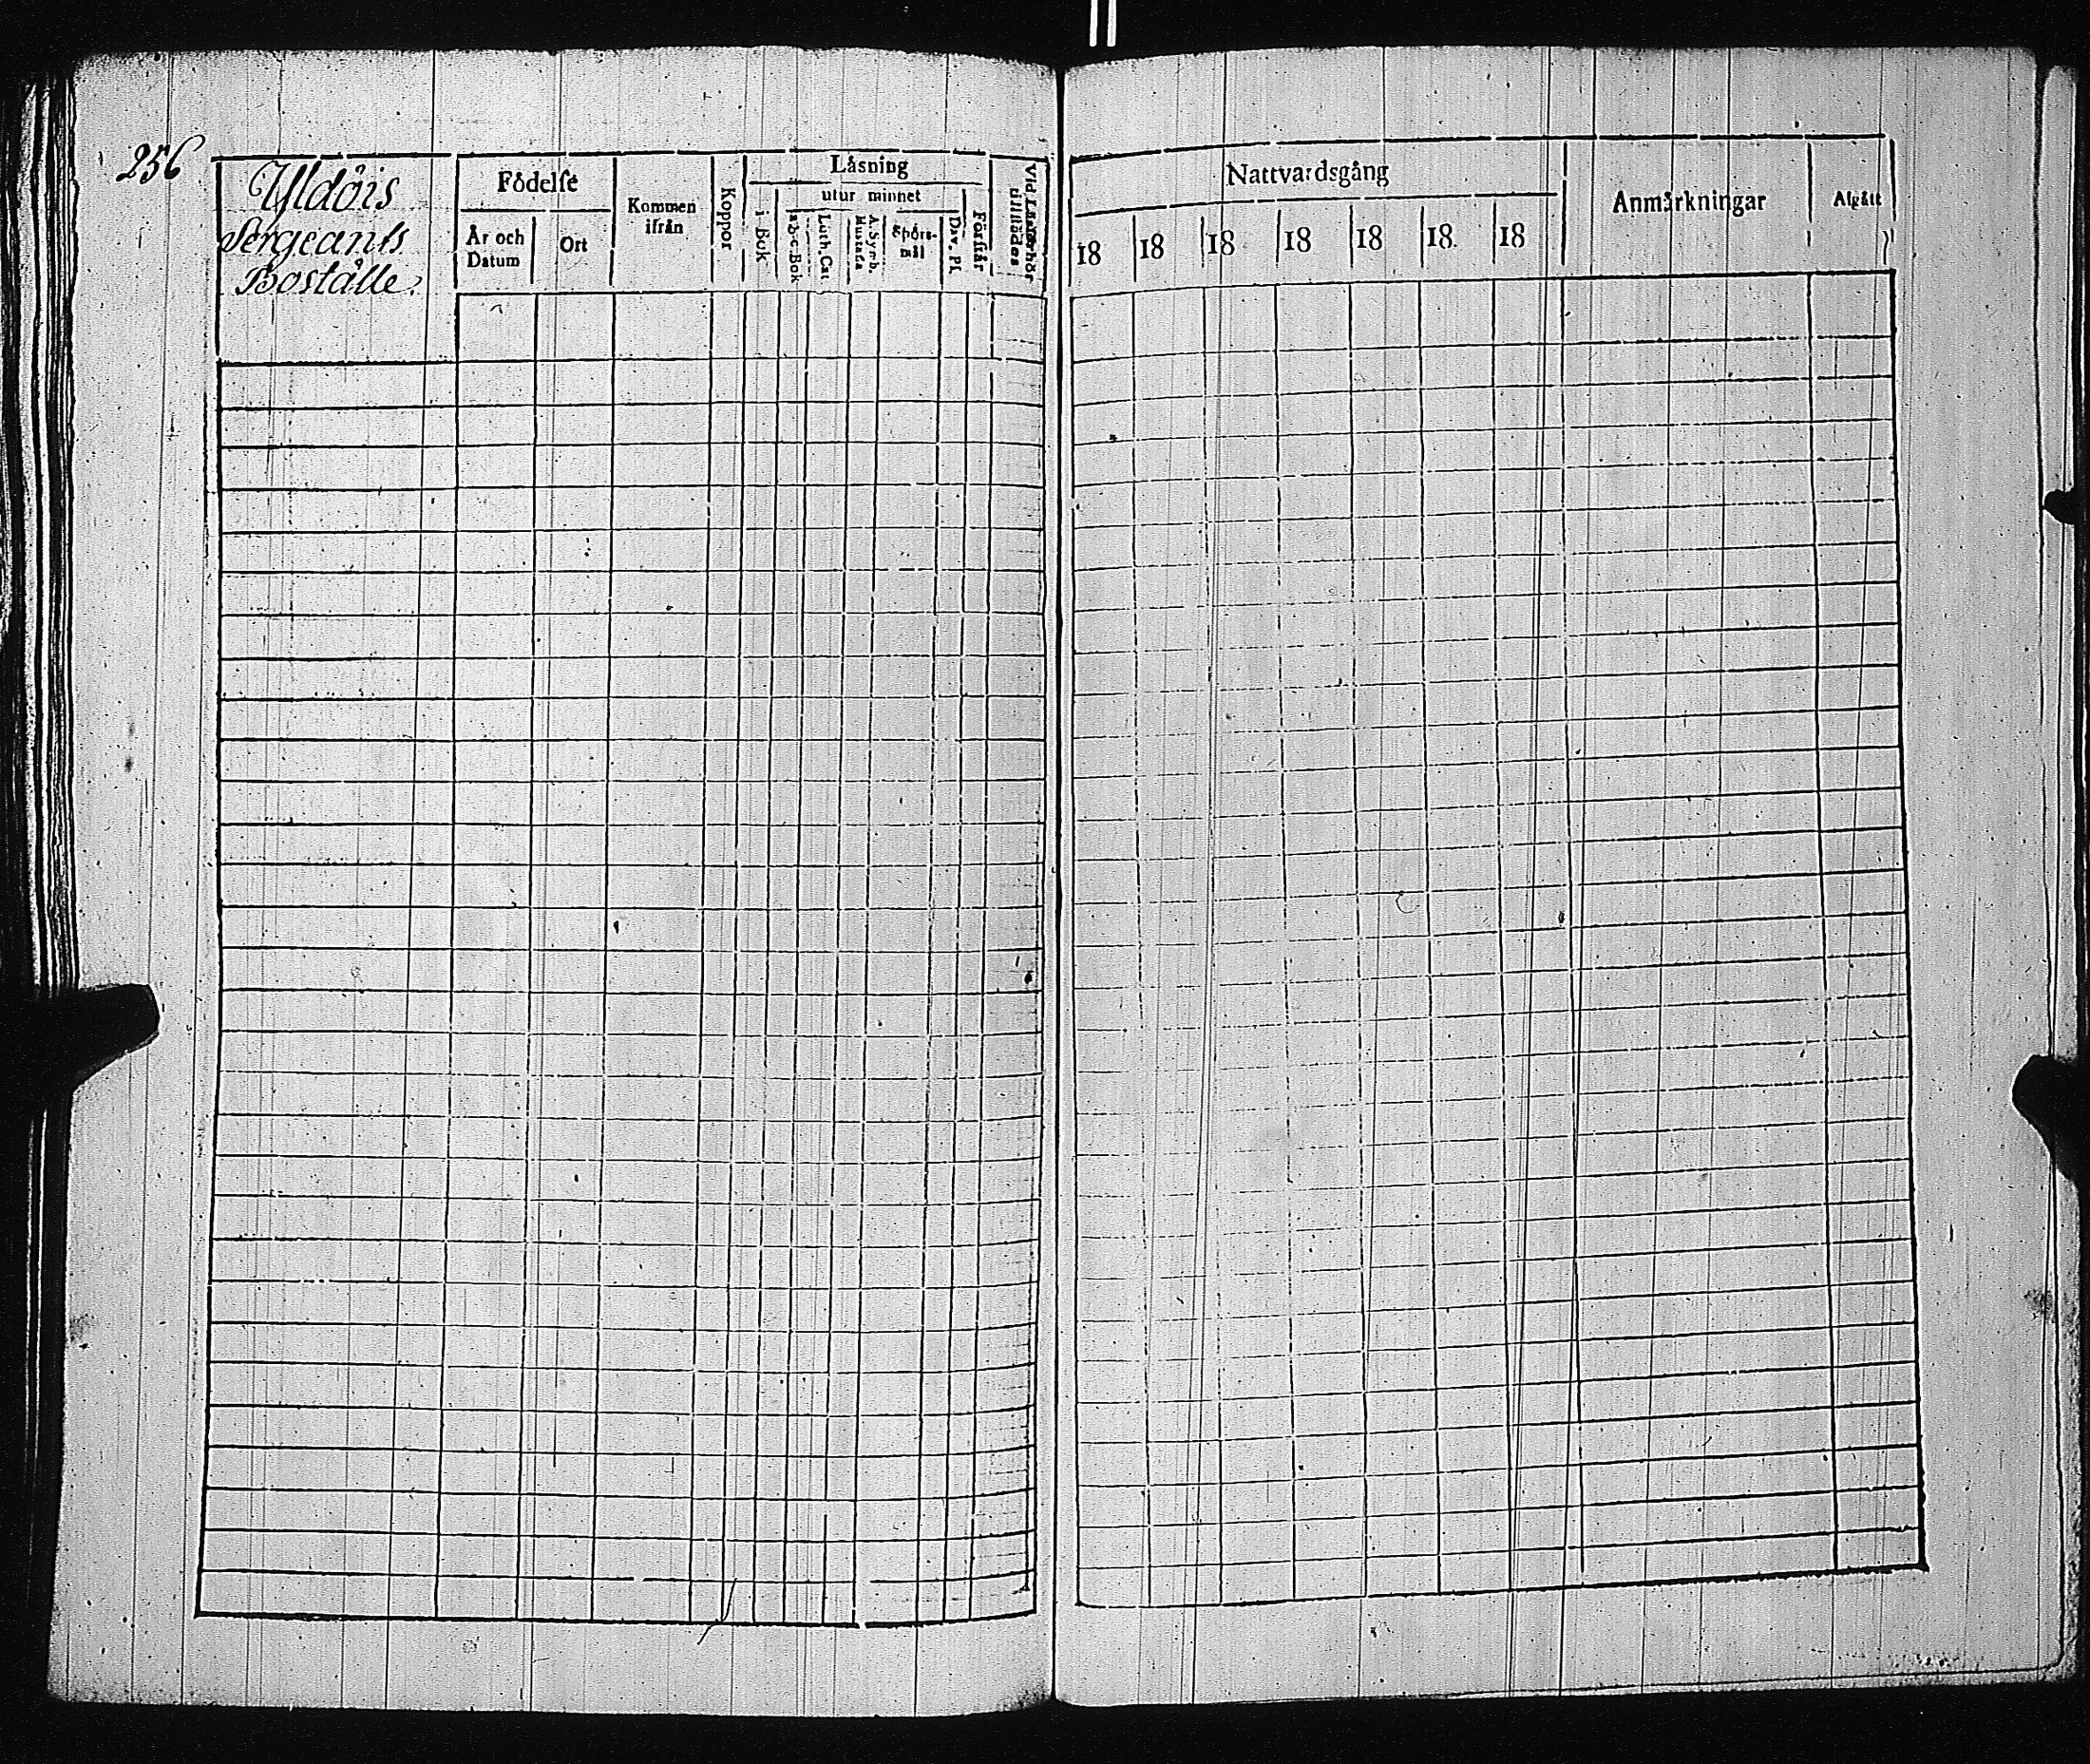 256
Yldöis
Sergeants
Boställe.
Födelse
År och
Datum
Ort
Kommen
ifrån
Koppor
Läsning
i Bok
utur minnet
a-b-c-Bok
Luth. Cat
A. Symb.
Hust.
Spörs-
mål
Dav. Ps.
Förstår
Vid Läsförhör
tillstädes
Nattvardsgång
18 18 18 18 18 18 18
Anmärkningar
Afgått